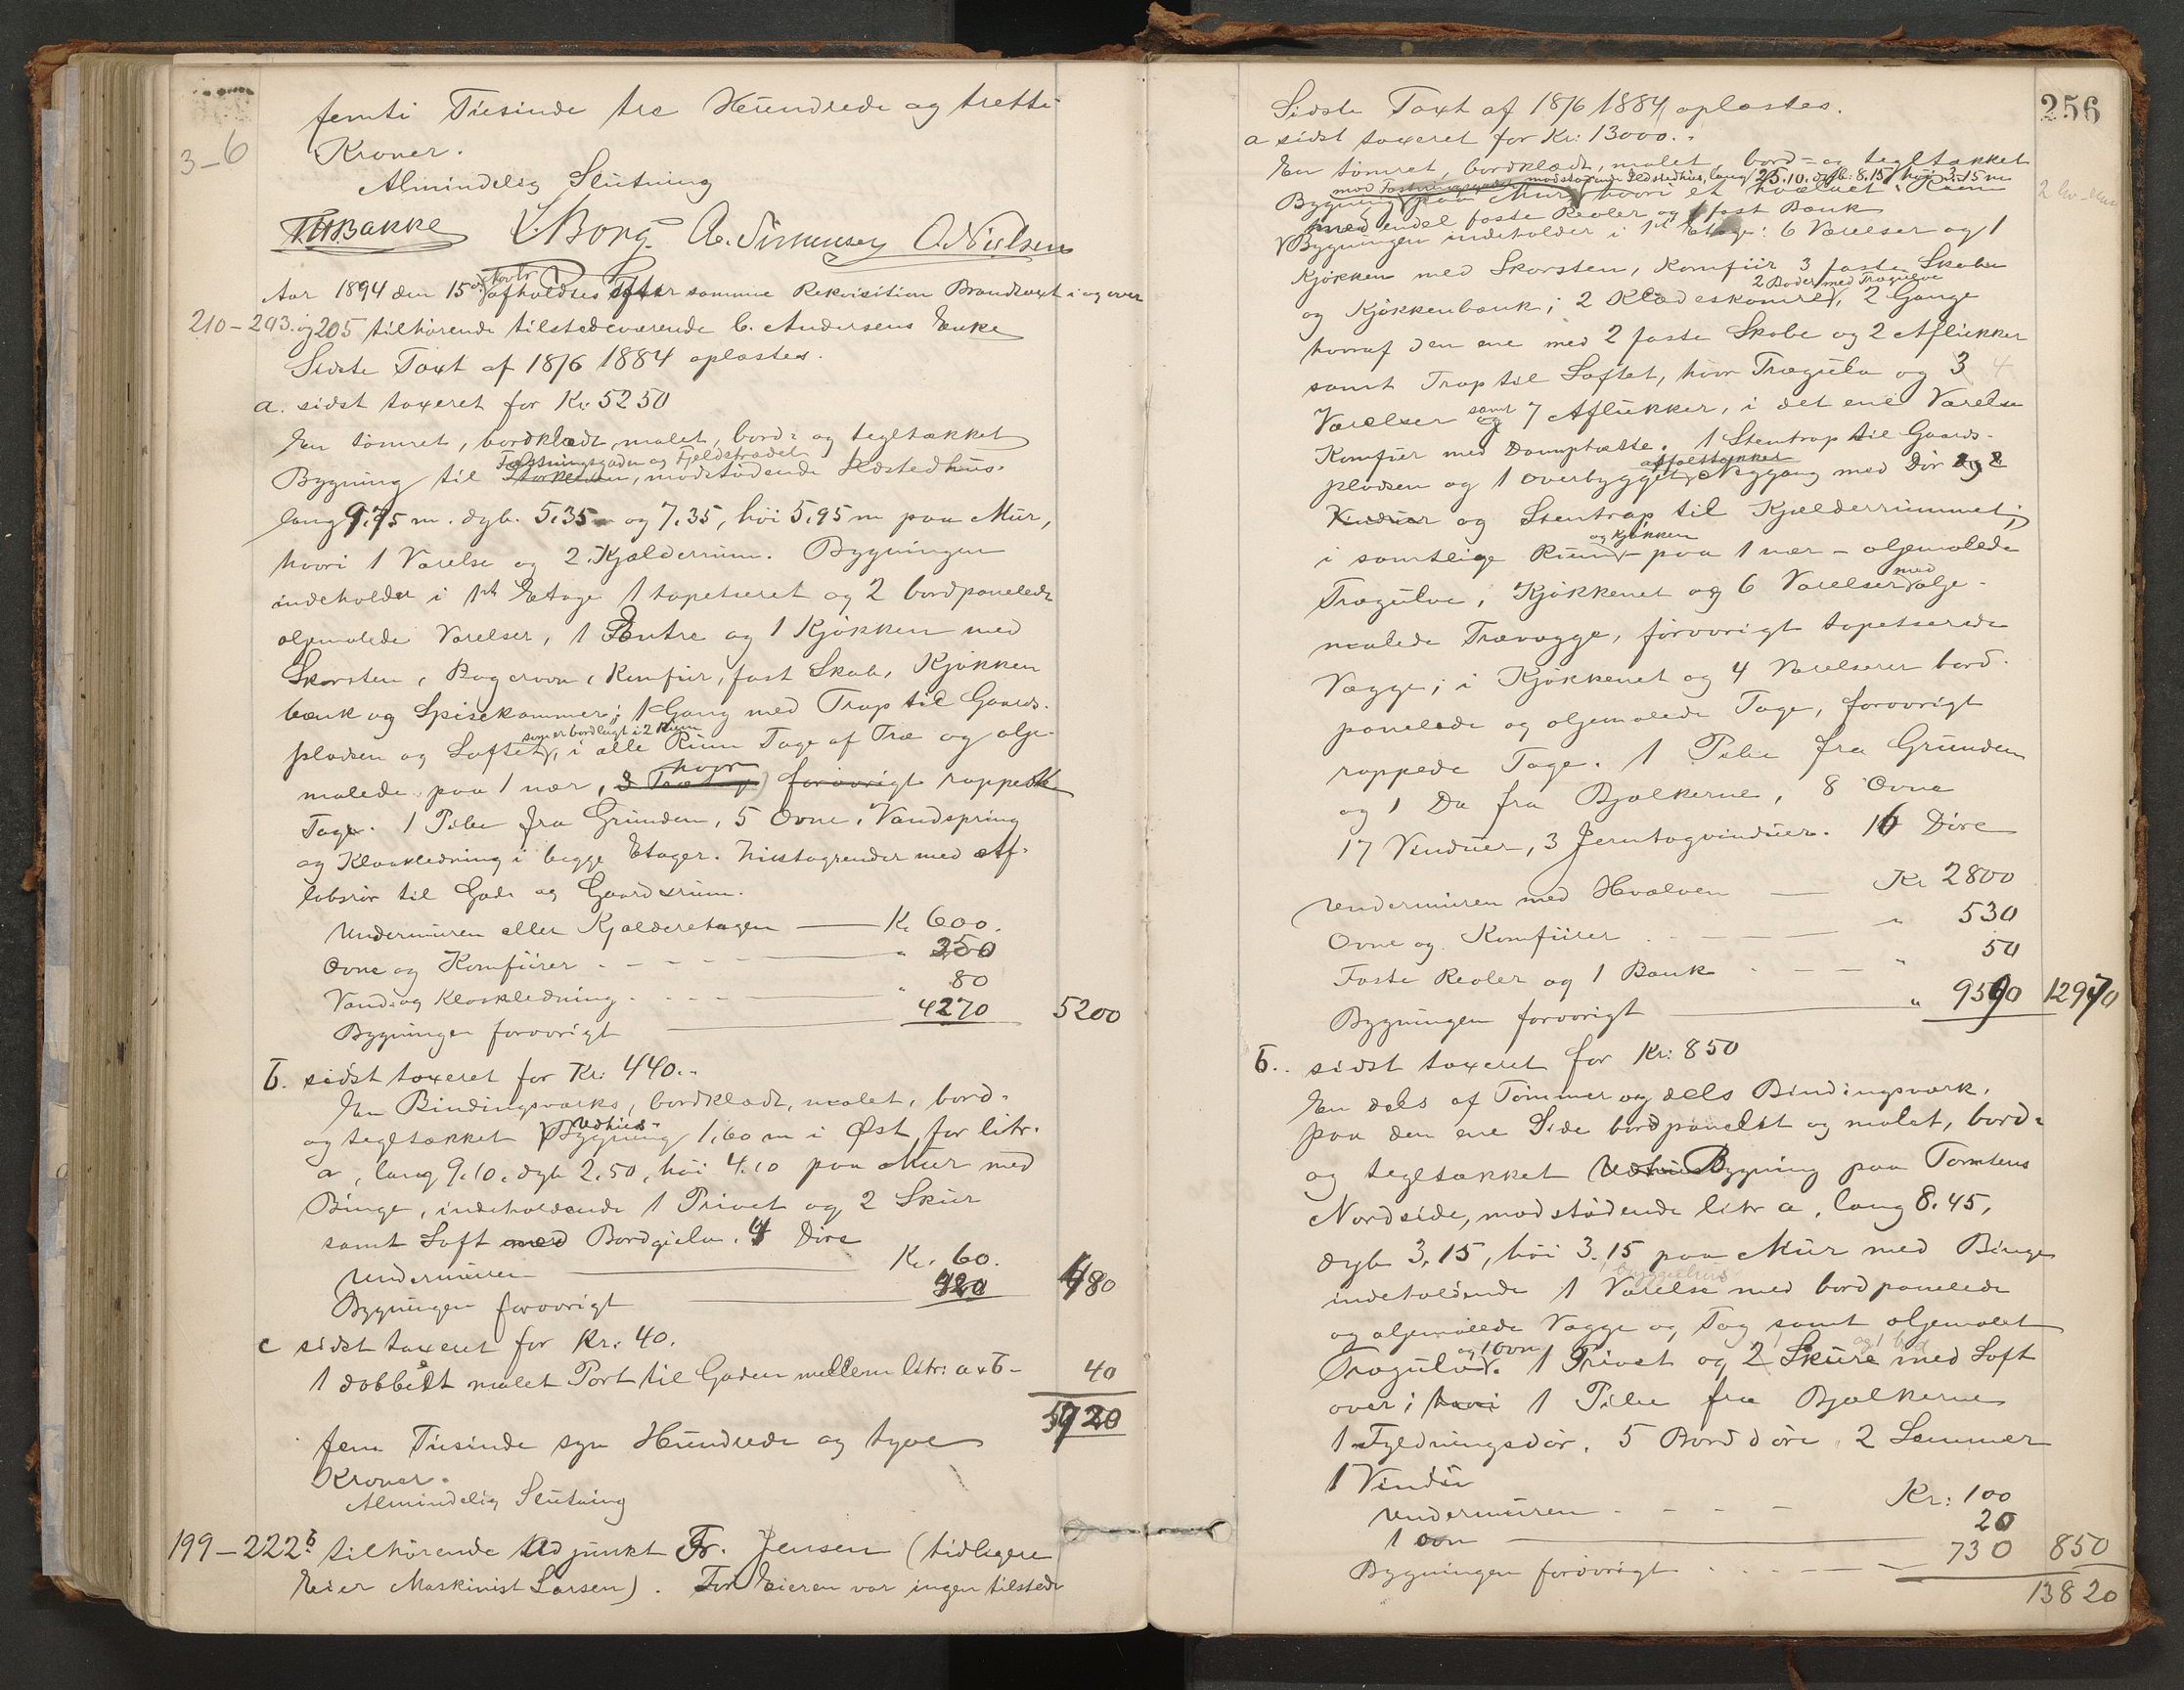 3-6
femti Tusinde tre Hundrede og tretti
Kroner.
Almindelig Slutning
THBakke L. Borg. A. Simensen O. Nielsen
Aar 1894 den 15de Novbr afholdtes efter samme Rekvisition Brandtaxt i og over
210-293. og 205 tilhørende tilstedeværende C. Andersens Enke
Sidste Taxt af 18/6 1884 oplæstes.
a. sidst taxeret for Kr. 5250
En tømret, bordklædt, malet, bord- og tegltækket
Fæstningsgaden og Fjeldstrædet
Bygning til, modstødende Ildstedhus.
lang 9.75 m. dyb. 5.35 og 7.35, høi 5.95 m paa Mur,
hvori 1 Værelse og 2 Kjælderrum. Bygningen
indeholder i 1ste Etage 1 tapetseret og 2 bordpanelede
oljemalede Værelser, 1 Entre og 1 Kjøkken med
Skorsten, Bagerovn, Komfur, fast Skab, Kjøkken
bænk og Spisekammer; 1 Gang med Trap til Gaards-
som er bordlagt i 2 Rum
pladsen og Loftet, i alle Rum Tage af Træ og olje-
malede paa 1 nær, hvor forøvrigt rappede
Tage. 1 Pibe fra Grunden, 5 Ovne. Vandspring
og Kloakledning i begge Etager. Zinktagrender med Af-
løbsrør til Gade og Gaardsrum.
Undermuren eller Kjælderetagen — Kr. 600.
Ovne og Komfurer - - - " 250
Vand- og Kloakledning - - - " 80
Bygningen forøvrigt — 4270 5200
b. sidst taxeret for Kr: 440.-
En Bindingsværks, bordklædt, malet, bord-
og tegltækket Vedhus- Bygning 1.60 m i Øst for litr.
a, lang 9.10. dyb 2.50, høi 4.10 paa Mur med
Binge, indeholdende 1 Privet og 2 Skur
samt Loft med Bordgulv. 4 Døre
Undermuren — Kr. 60.
Bygningen forøvrigt — 420 480
c sidst taxeret for Kr: 40.
1 dobbelt malet Port til Gaden mellem litr: a & b - 40
5720
fem Tusinde syv Hundrede og tyve
Kroner.
Almindelig Slutning
199-222b tilhørende Adjunkt Fr. Jensen (tidligere
Eier Maskinist Larsen). For Eieren var ingen tilstede
256
Sidste Taxt af 18/6 1884 oplæstes.
a sidst taxeret for Kr: 13000.-
En tømret, bordklædt, malet, bord- og tegltækket
mod Fæstningsgaden modstødende Ildstedhus, lang 25.10. dyb: 8.15 høi 3.15 m
Bygning paa Mur hvori et hvælvet Rum
med endel faste Reoler og 1 fast Bænk
Bygningen indeholder i 1ste Etage: 6 Værelser og 1
Kjøkken med Skorsten, Komfur 3 faste Skabe
2 Boder med Trægulve
og Kjøkkenbænk; 2 Klædeskamre, 2 Gange
hvoraf den ene med 2 faste Skabe og 2 Aflukker
samt Trap til Loftet, hvor Trægulv og 3 4
Værelser samt 7 Aflukker, i det ene Værelse
Komfur med Damphætte. 1 Stentrap til Gaards-
asfalttækket
pladsen og 1 overbygget Neggang med Dør og 2
Vinduer og Stentrap til Kjælderrummet;
og Kjøkken
i samtlige Rum - paa 1 nær - oljemalede
Trægulve, Kjøkkenet og 6 Værelser med olje-
malede Trævægge, forøvrigt tapetserede
Vægge; i Kjøkkenet og 4 Værelser bord-
panelede og oljemalede Tage, forøvrigt
rappede Tage. 1 Pibe fra Grunden
og 1 Do fra Bjælkerne, 8 Ovne
17 Vinduer, 3 Jerntagvinduer. 16 Døre
Undermuren med Hvælven — Kr 2800
Ovne og Komfurer - — " 530
Faste Reoler og 1 Bænk - - - " 50
Bygningen forøvrigt — " 9590 12970
b.. sidst taxeret for Kr: 850
En dels af Tømmer og dels Bindingsværk,
paa den ene Side bordpanelet og malet, bord-
og tegltækket Vedhus Bygning paa Tomtens
Nordside, modstødende litr a, lang 8.45,
dyb 3.15, høi 3.15 paa Mur med Binge
1 bryggerhus
indeholdende 1 Værelse med bordpanelede
og oljemalede Vægge og Tag samt oljemalet
og 1 Ovn og 1 bod
Trægulv. 1 Privet og 2 Skure med Loft
over; hvori 1 Pibe fra Bjælkerne
1 Fyldningsdør. 5 Borddøre, 2 Lemmer
1 Vindu
Undermuren - - - - Kr: 100
1 Ovn — 20
Bygningen forøvrigt - - - - 730 850
13820